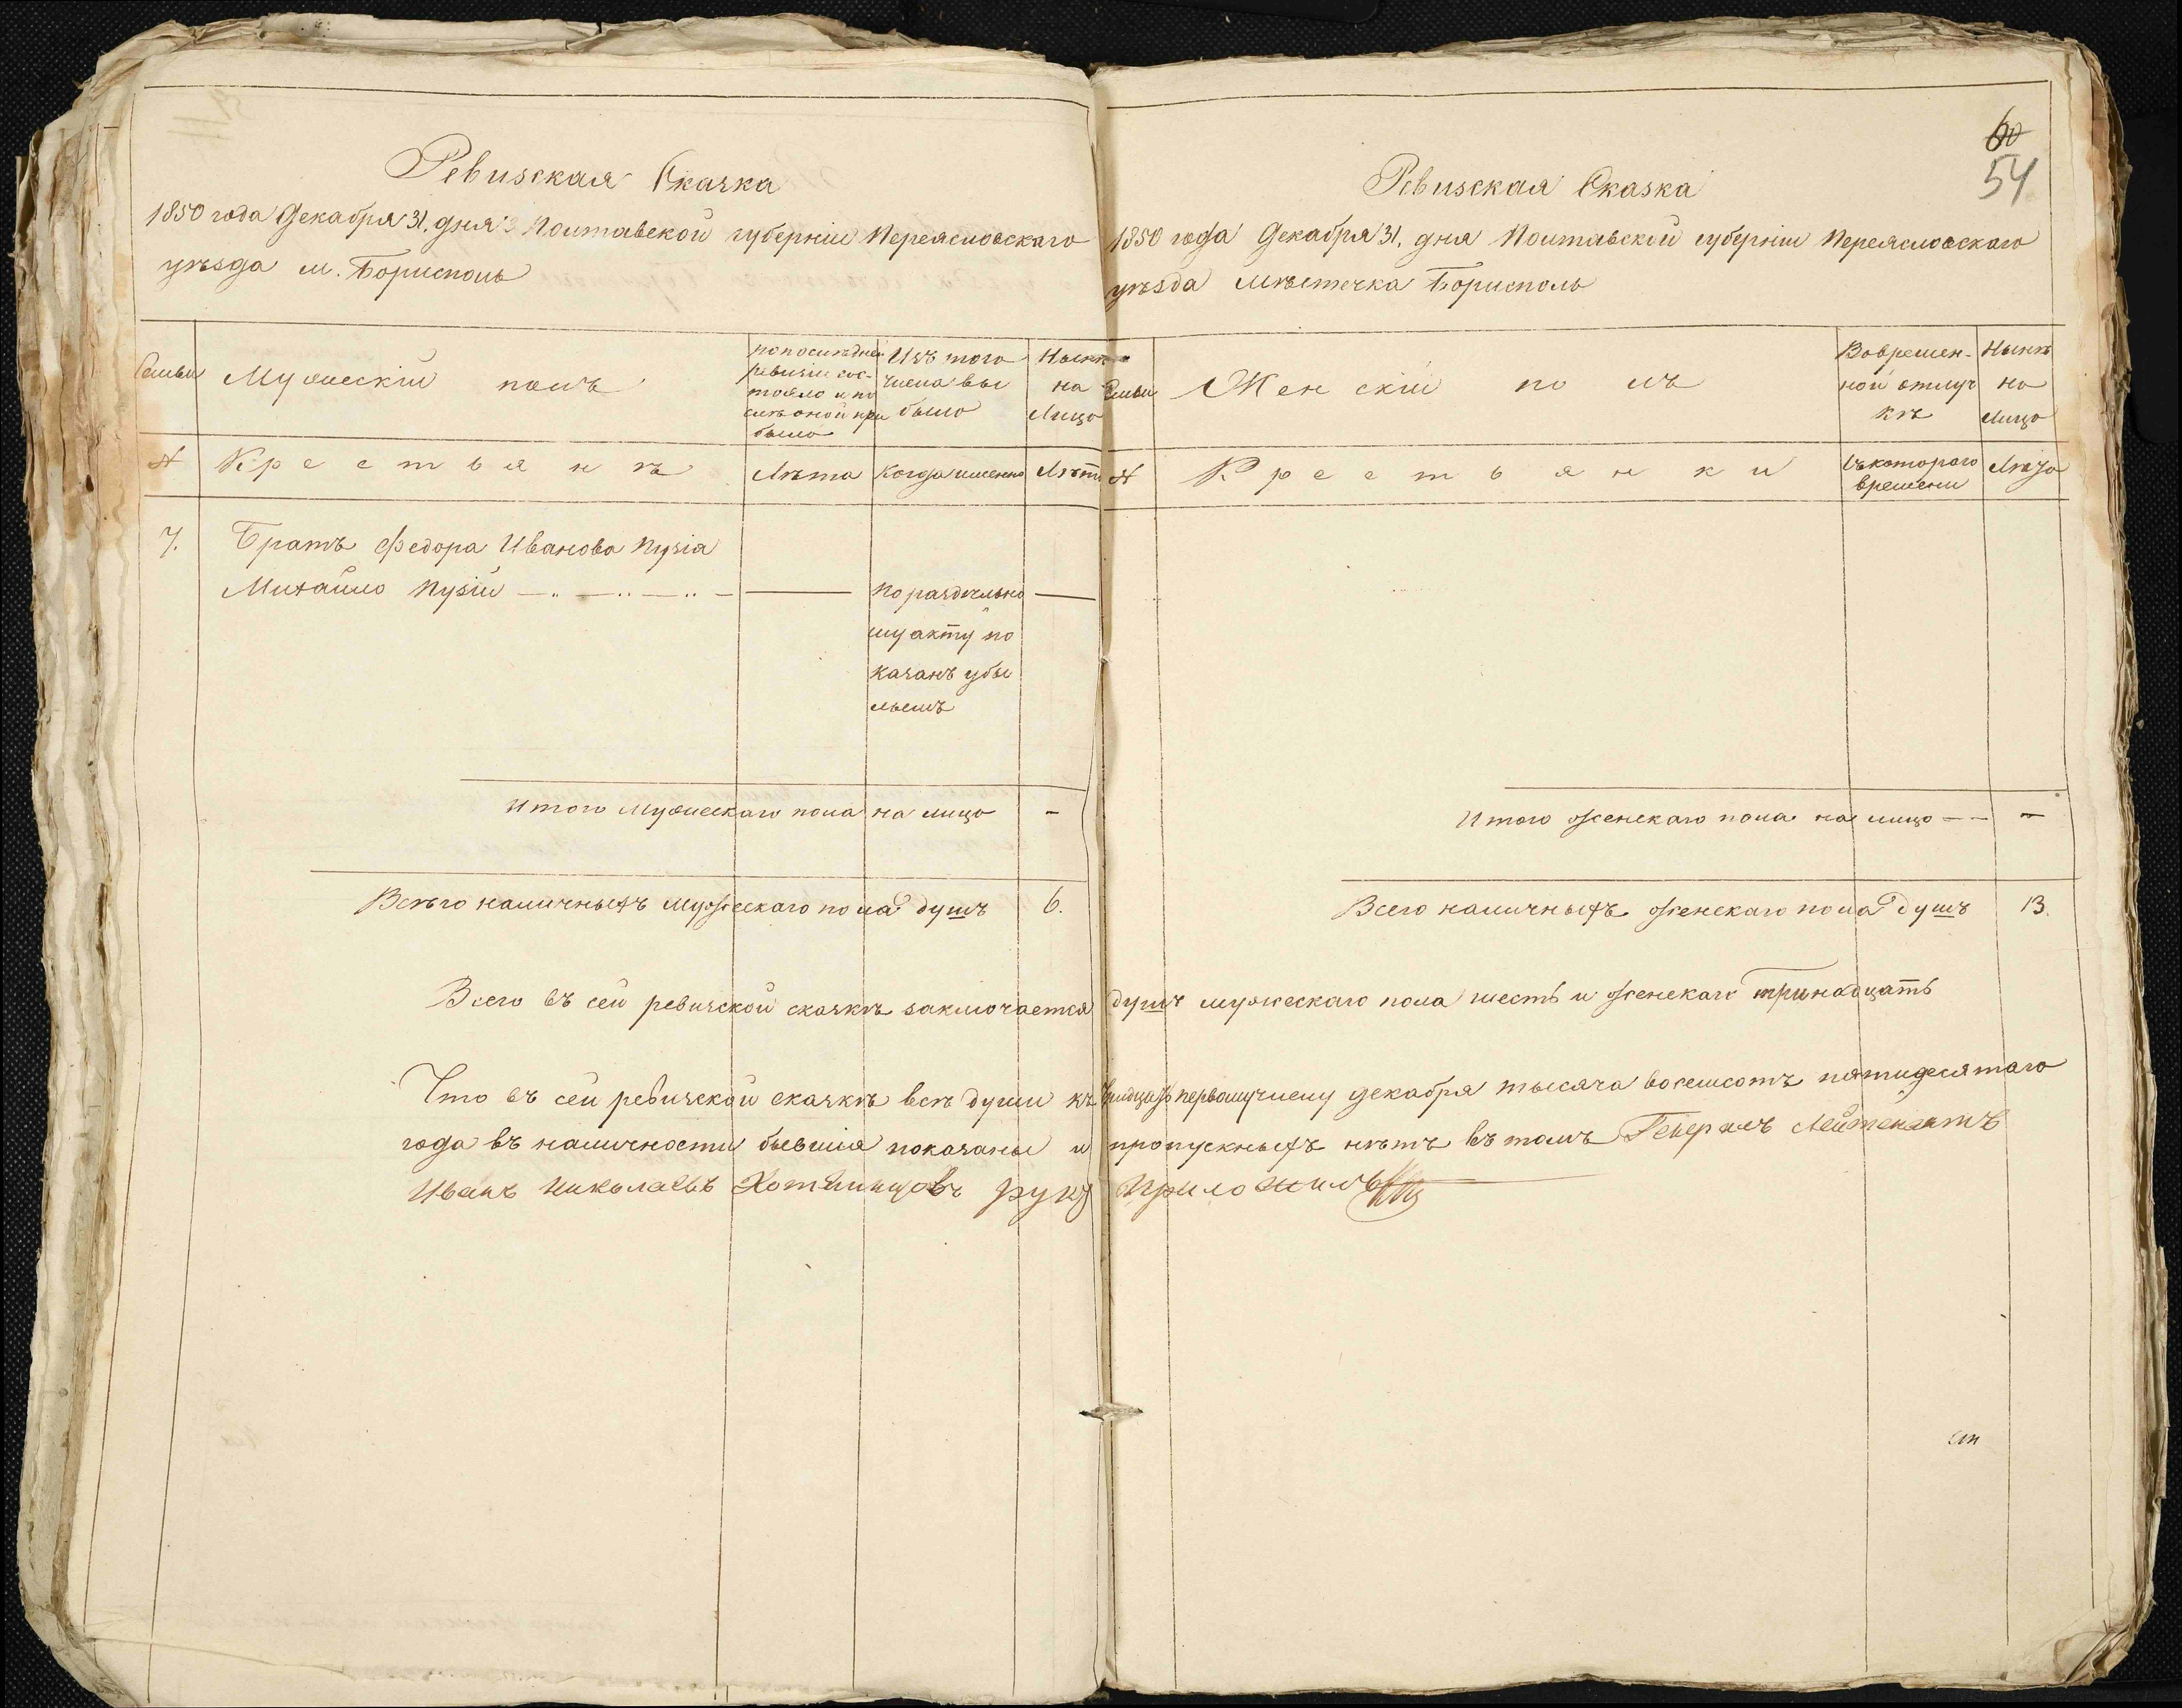 Ревизская Сказка
1850 года Декабря 31. дня Полтавской губерніи Переясловскаго
уѣзда м. Борисполь
Семьи
Мужескій полъ
по последней
ревизіи сос-
тояло и по
слѣ оной при
было
Изъ того
числа вы
было
Нынѣ
на
Лицо
№
Крестьянъ
Лѣта
Когда именно
Лѣта
7.
Братъ Федора Иванова Пузія
Михайло Пузій
По раздельно
му акту по
казанъ убы
лымъ
Итого мужескаго пола на лицо -
Всѣго наличныхъ мужескаго пола душъ 6.
60
54
Ревизская Сказка
1850 года Декабря 31. дня Полтавской губерніи Переясловскаго
уѣзда мѣстечка Борисполь
Семьи
Женскій полъ
Во времен-
ной отлуч
кѣ
Нынѣ
на
лицо
№
Крестьянки
Съ котораго
времени
Лѣта
Итого женскаго пола на лицо - - -
Всего наличныхъ женскаго пола душъ 13.
Всего въ сей ревизской сказкѣ заключается душъ мужескаго пола шесть и женскаго тринадцать
Что въ сей ревизской сказкѣ всѣ души къ тридцать первому числу декабря тысяча восемсотъ пятидесятаго
года въ наличности бывшія показаны и пропускныхъ нѣтъ въ томъ Генералъ Лейтенантъ
Иванъ Николаевъ Хотяинцовъ руку приложилъ